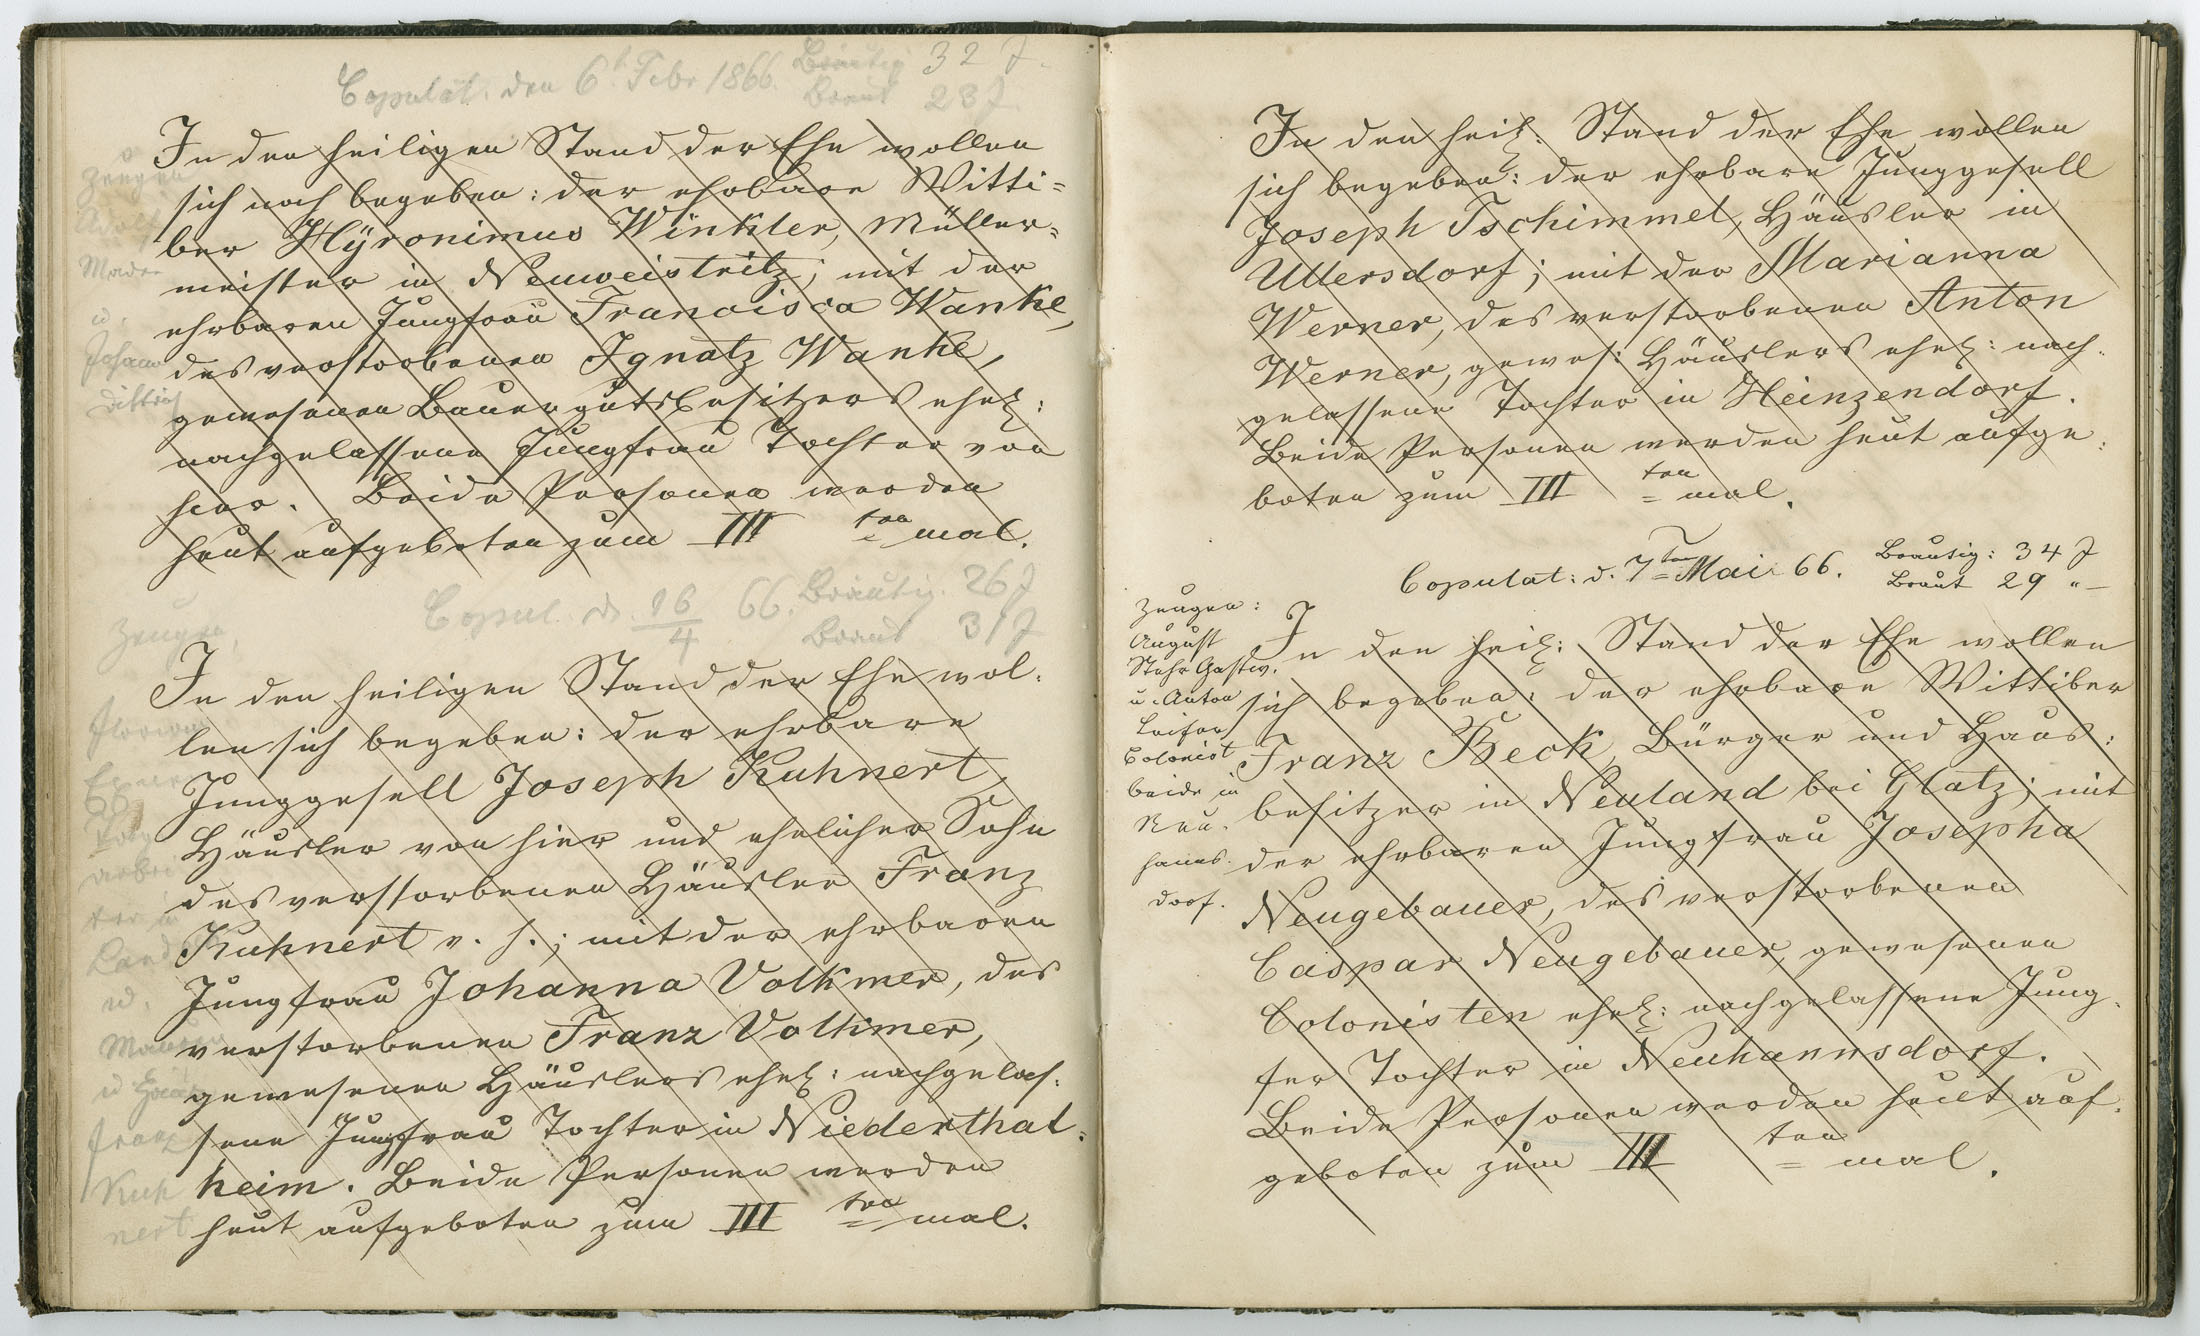 Copulat. den 6t. Febr 1866. Bräutig 32 J.
Braut 23 J.
Zeugen
In den heiligen Stand der Ehe wollen
sich noch begeben: der ehrbare Witti=
ber Hÿronimus Winkler, Müller=
meister in Neuweistritz; mit der
ehrbaren Jungfrau Francisca Wanke,
des verstorbenen Ignatz Wanke,
gewesenen Bauergutsbesitzers ehel:
nachgelassene Jungfrau Tochter von
hier. Beide Personen werden
heut aufgeboten zum III ten mal.
u.
Johann
Dittrich
Copul. d. 16/4 66. Bräutig. 26 J
Braut 31 J
Zeugen,
In den heiligen Stand der Ehe wol=
len sich begeben: der ehrbare
Junggesell Joseph Kuhnert,
Häusler von hier und ehelicher Sohn
des verstorbenen Häusler Franz
Kuhnert v. h.; mit der ehrbaren
Jungfrau Johanna Volkmer, des
verstorbenen Franz Volkmer,
gewesenen Häuslers ehel: nachgelas=
sene Jungfrau Tochter in Niederthal=
heim. Beide Personen werden
heut aufgeboten zum III ten mal.
Florian
u.
Franz
Kuh
nert
In den heil: Stand der Ehe wollen
sich begeben: der ehrbare Junggesell
Joseph Tschimmel, Häusler in
Ullersdorf; mit der Marianna
Werner, des verstorbenen Anton
Werner, gewes: Häuslers ehel: nach=
gelassene Tochter in Heinzendorf.
Beide Personen werden heut aufge=
boten zum III ten mal.
Copulat: d. 7ten Mai 66. Bräutig: 34 J
Braut 29 "
Zeugen:
August
Stehr Gastw.
u. Anton
Leifer
Colonist
beide in
Neu=
hanns=
dorf.
In den heil: Stand der Ehe wollen
sich begeben: der ehrbare Wittiber
Franz Beck, Bürger und Haus=
besitzer in Neuland bei Glatz; mit
der ehrbaren Jungfrau Josepha
Neugebauer, des verstorbenen
Caspar Neugebauer, gewesenen
Colonisten ehel: nachgelassene Jung=
fer Tochter in Neuhannsdorf.
Beide Personen werden heut auf=
geboten zum III ten mal.